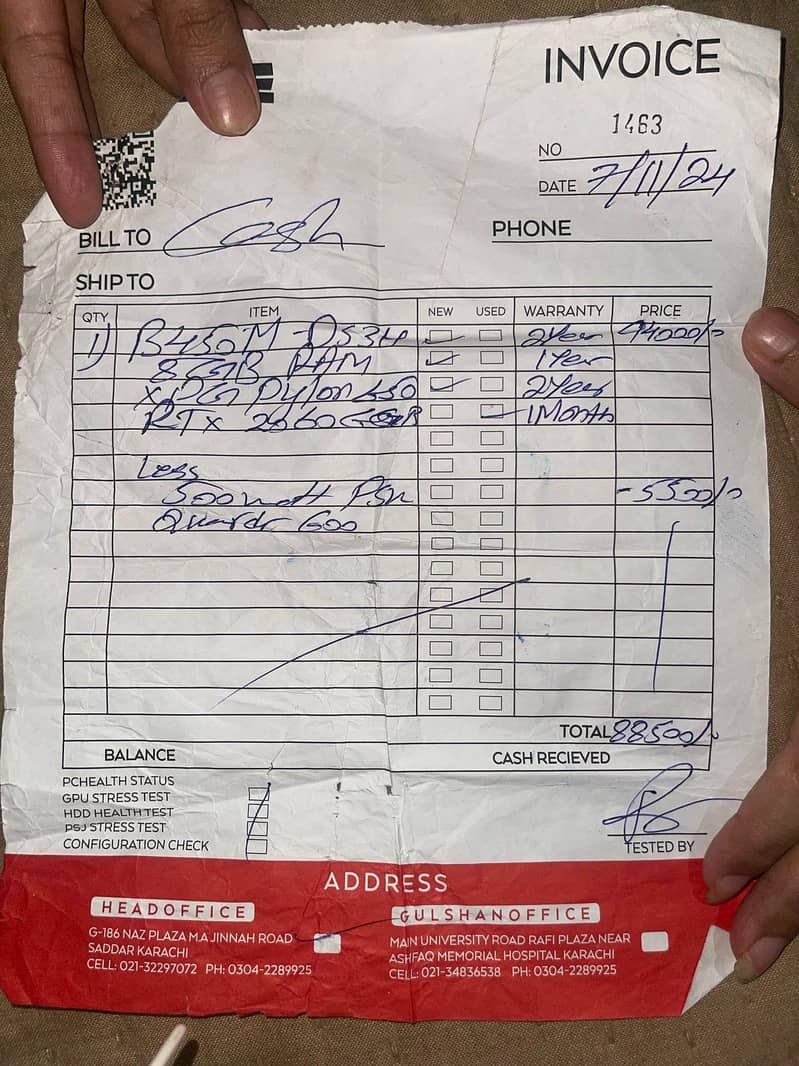 INVOICE
1463
NO
DATE 7/11/24
BILL TO Cash
PHONE
SHIP TO
QTY ITEM NEW USED WARRANTY PRICE
1) B450M-DS3H 2Year 94000/-
8GB RAM 1Year
XPG Pylon 650 2Year
RTX 2060 6GB 1Month
Less
500watt PSU -5500/-
Quardr 600
TOTAL 88500/-
BALANCE CASH RECIEVED
PCHEALTH STATUS
GPU STRESS TEST
HDD HEALTH TEST
PSJ STRESS TEST
CONFIGURATION CHECK
TESTED BY
ADDRESS
HEADOFFICE
G-186 NAZ PLAZA M.A JINNAH ROAD
SADDAR KARACHI
CELL: 021-32297072 PH: 0304-2289925
GULSHANOFFICE
MAIN UNIVERSITY ROAD RAFI PLAZA NEAR
ASHFAQ MEMORIAL HOSPITAL KARACHI
CELL: 021-34836538 PH: 0304-2289925